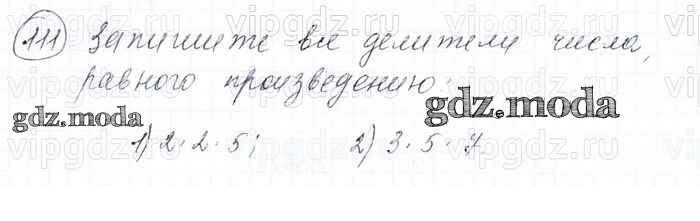 111 Запишите все делители числа,
равного произведению:
gdz.moda gdz.moda
1) 2·2·5; 2) 3·5·7